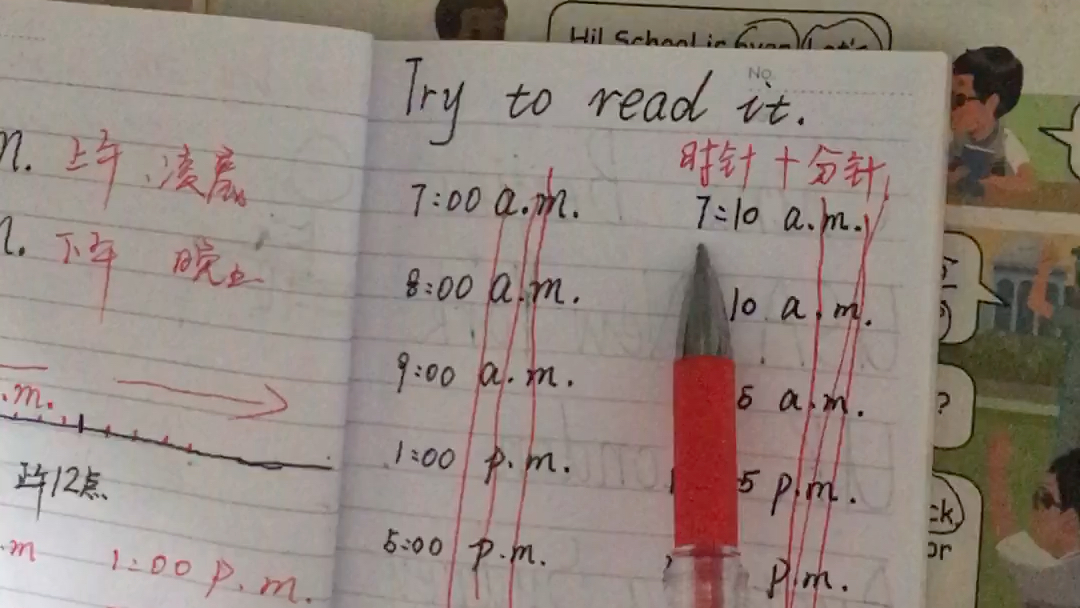 m. 上午、凌晨
m. 下午 晚上
.m.
正午12点
.m 1:00 p.m.
No.
Try to read it.
时针+分针
7:00 a.m. 7:10 a.m.
8:00 a.m. 10 a.m.
9:00 a.m. 5 a.m.
1:00 p.m. 5 p.m.
5:00 p.m. p.m.
Hi! School is over Let's
?
ck,
or